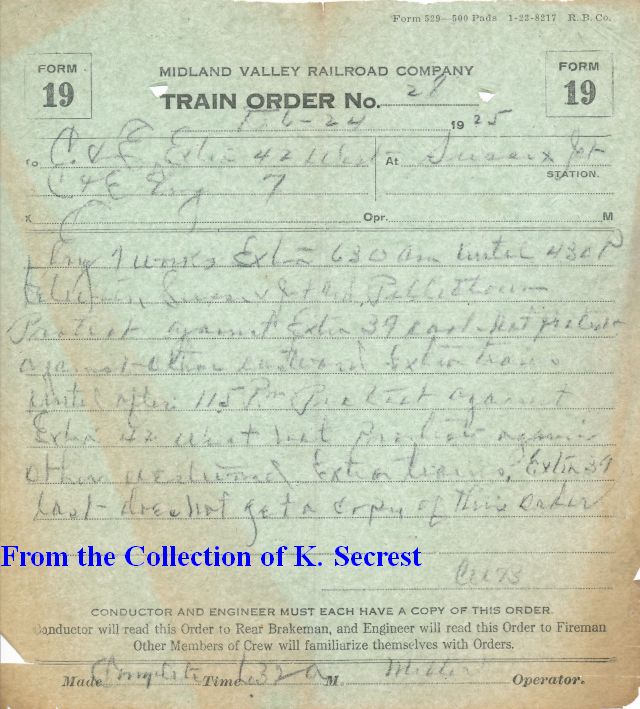 Form 529—500 Pads 1-23-8217 R.B.Co.
FORM 19
MIDLAND VALLEY RAILROAD COMPANY
FORM 19
TRAIN ORDER No. 28
Feb-24 1925
To C. & E. Extra 42 West At Sussex Jct
STATION.
C & E Eng 7
X Opr. M
Eng 7 works Extra 630 am until 430 P
between Sussex Jct and
Protect against Extra 39 east not protect
against other eastward Extra trains
until after 115 Pm Protect against
Extra 42 West not protect against
other westward Extra trains, Extra 39
East does not get a copy of this order
From the Collection of K. Secrest
CONDUCTOR AND ENGINEER MUST EACH HAVE A COPY OF THIS ORDER.
Conductor will read this Order to Rear Brakeman, and Engineer will read this Order to Fireman
Other Members of Crew will familiarize themselves with Orders.
Made Complete Time 632 A M. Operator.